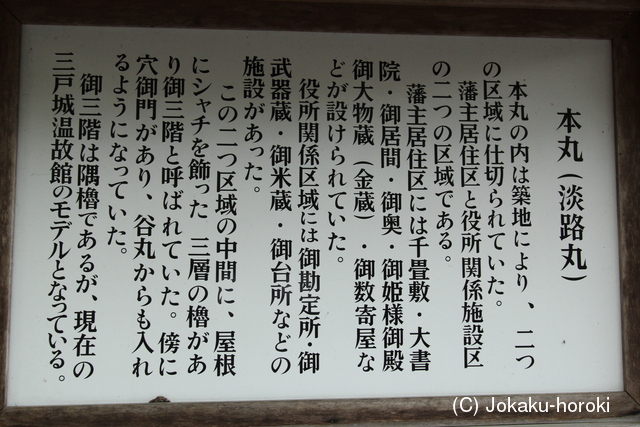 本丸（淡路丸）
本丸の内は築地により、二つ
の区域に仕切られていた。
藩主居住区と役所関係施設区
の二つの区域である。
藩主居住区には千畳敷・大書
院・御居間・御奥・御姫様御殿
御大物蔵（金蔵）・御数寄屋な
どが設けられていた。
役所関係区域には御勘定所・御
武器蔵・御米蔵・御台所などの
施設があった。
この二つ区域の中間に、屋根
にシャチを飾った三層の櫓があ
り御三階と呼ばれていた。傍に
穴御門があり、谷丸からも入れ
るようになっていた。
御三階は隅櫓であるが、現在の
三戸城温故館のモデルとなっている。
(C) Jokaku-horoki